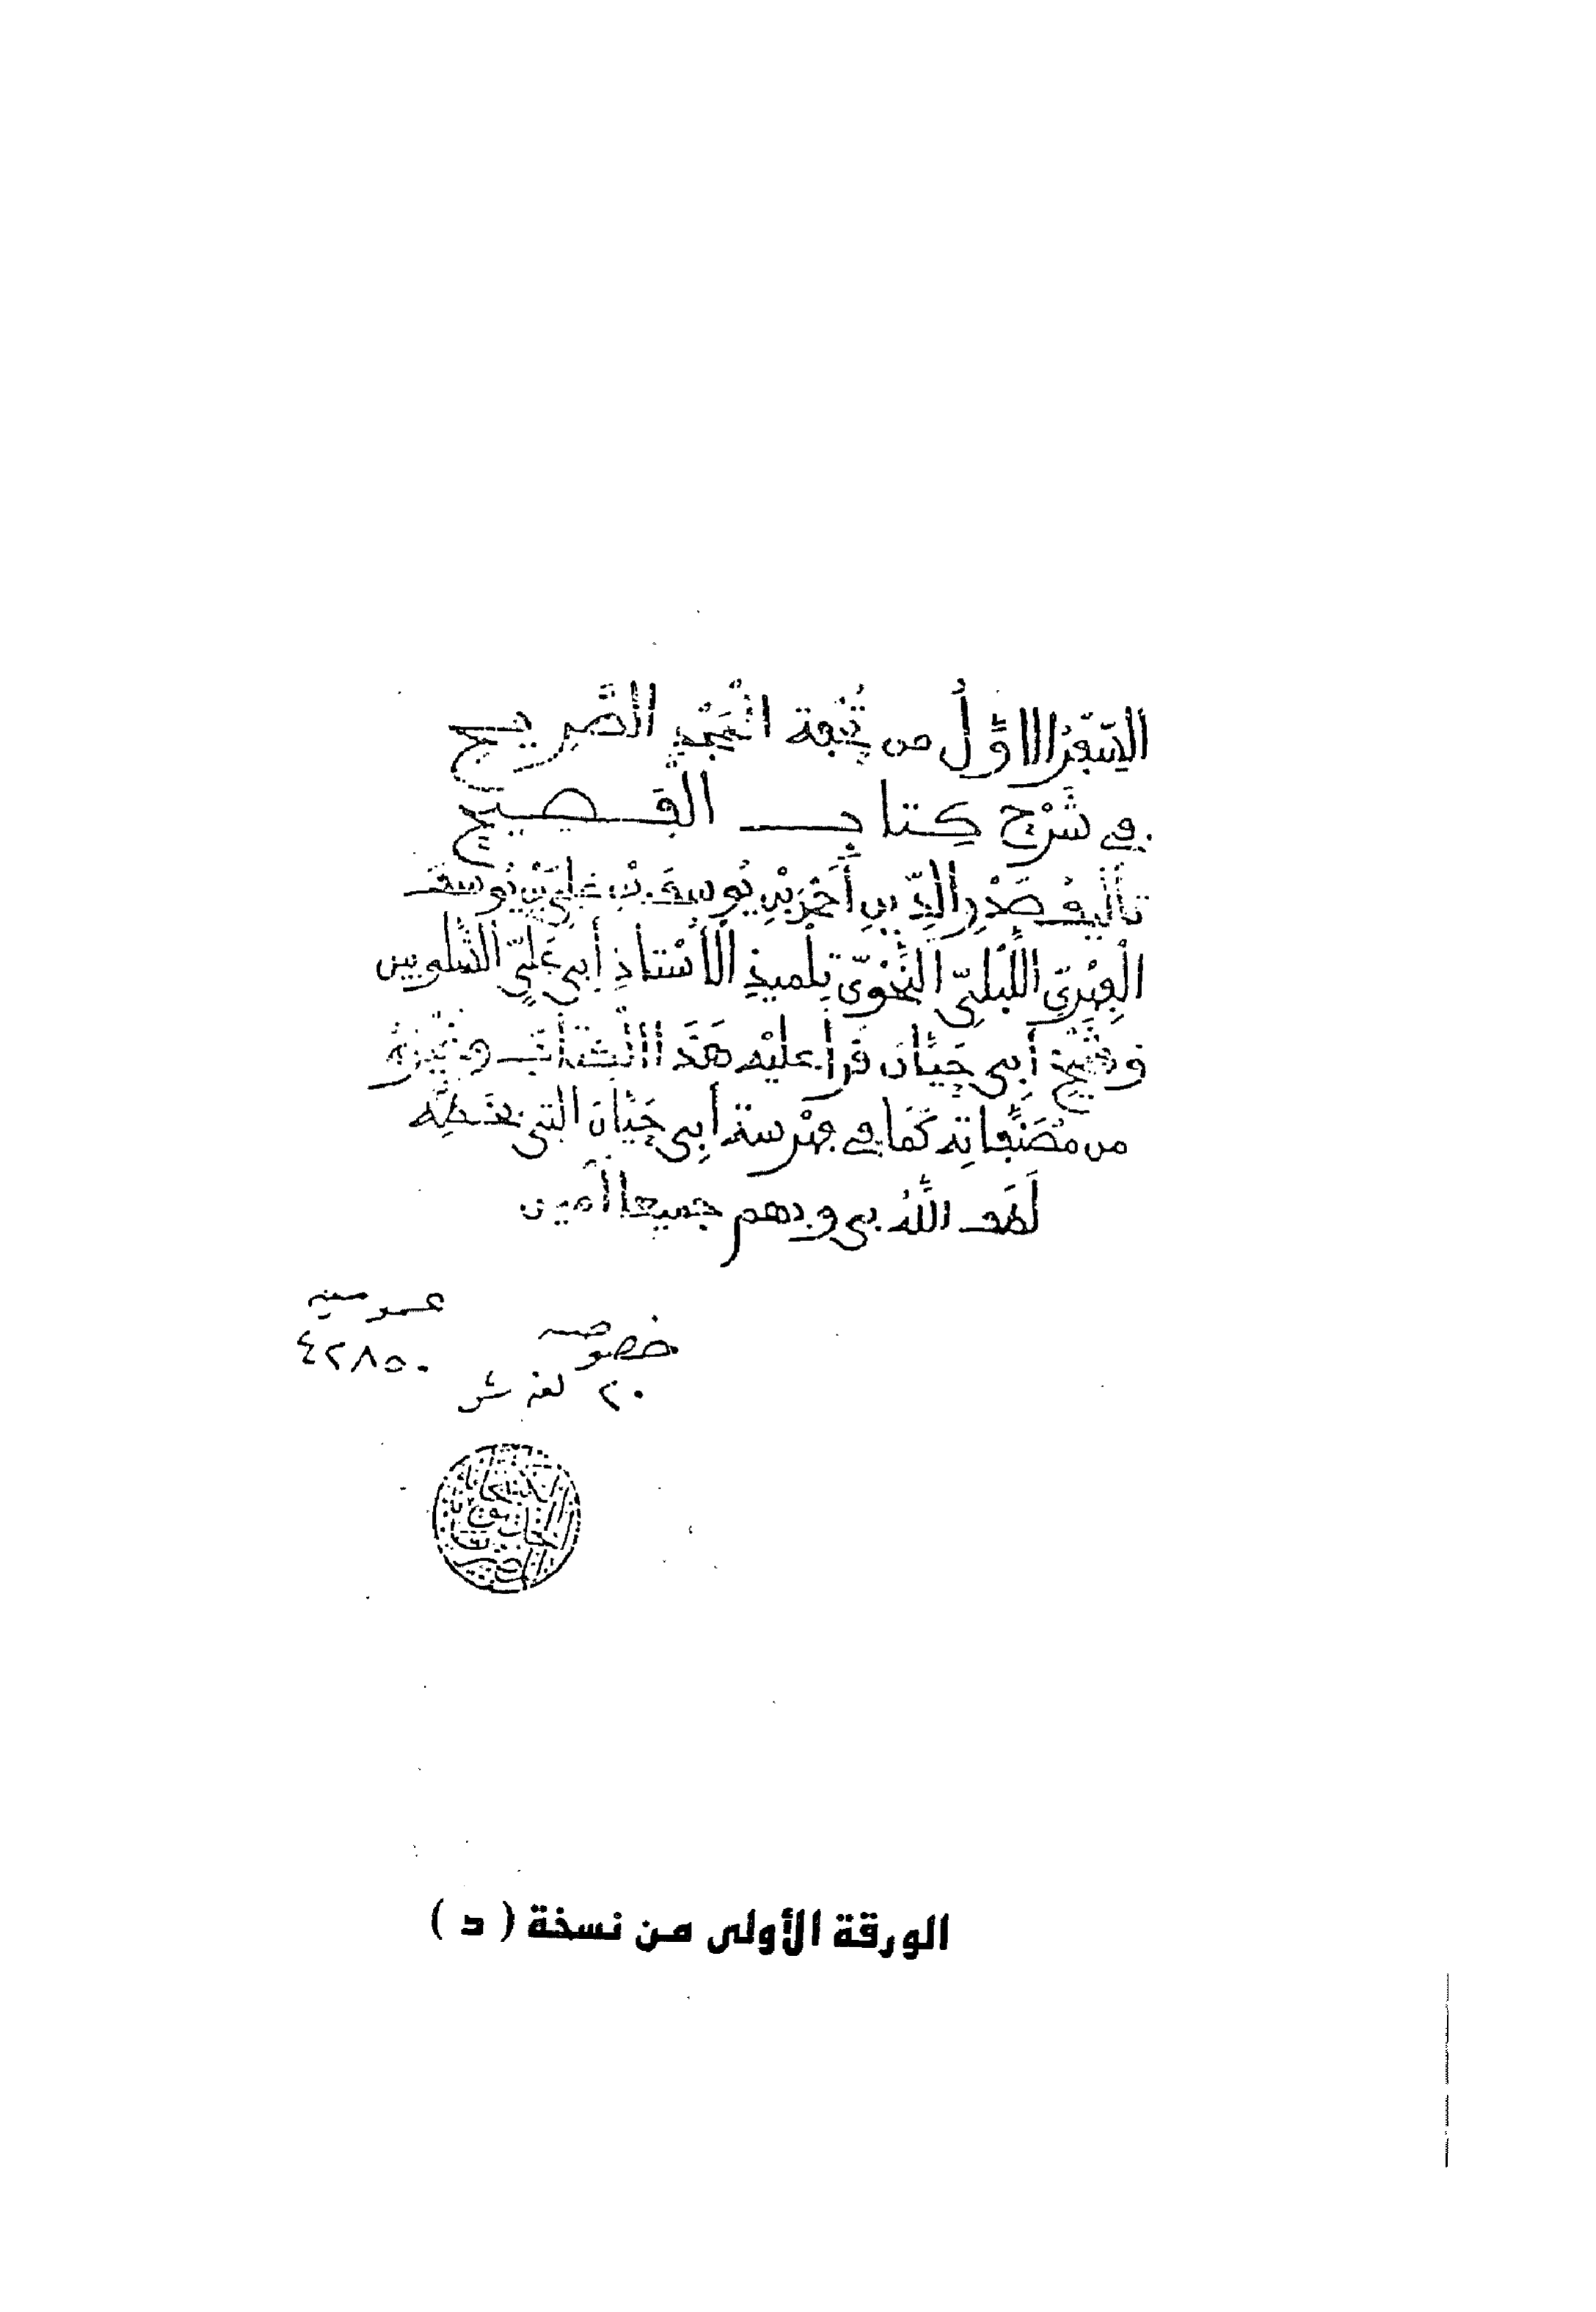 السِّفْرُ الاوَّلُ من تُحْفة المَجْدِ الصَّرِيح
في شَرْحِ كِتابِ الفَصِيح
تأليف صَدْرِ الدِّينِ أَحْمَدَ بْنِ يُوسِفَ بْنِ عَلِيِّ بْنِ يُوسف
الْفِهْرِيِّ اللَّبْلِيِّ النَّحْوِيِّ تِلْميذِ الأُسْتاذِ أبِي عَلِيٍّ الشَّلَوبين
وشَيْخِ أبِي حَيَّانَ قرأ عليْه هَذَا الكتابَ وغَيْرَهُ
من مُصَنَّفاتِه كَمَا في فِهْرسة أبِي حَيَّانَ التي بخَطِّه
لَطَف اللّهُ بي وبهم جميعا آمين
عموميه
٤٢٨٥٠
خصوصيه
٢٠ لغه ش
الورقة الأولى من نسخة ( د )